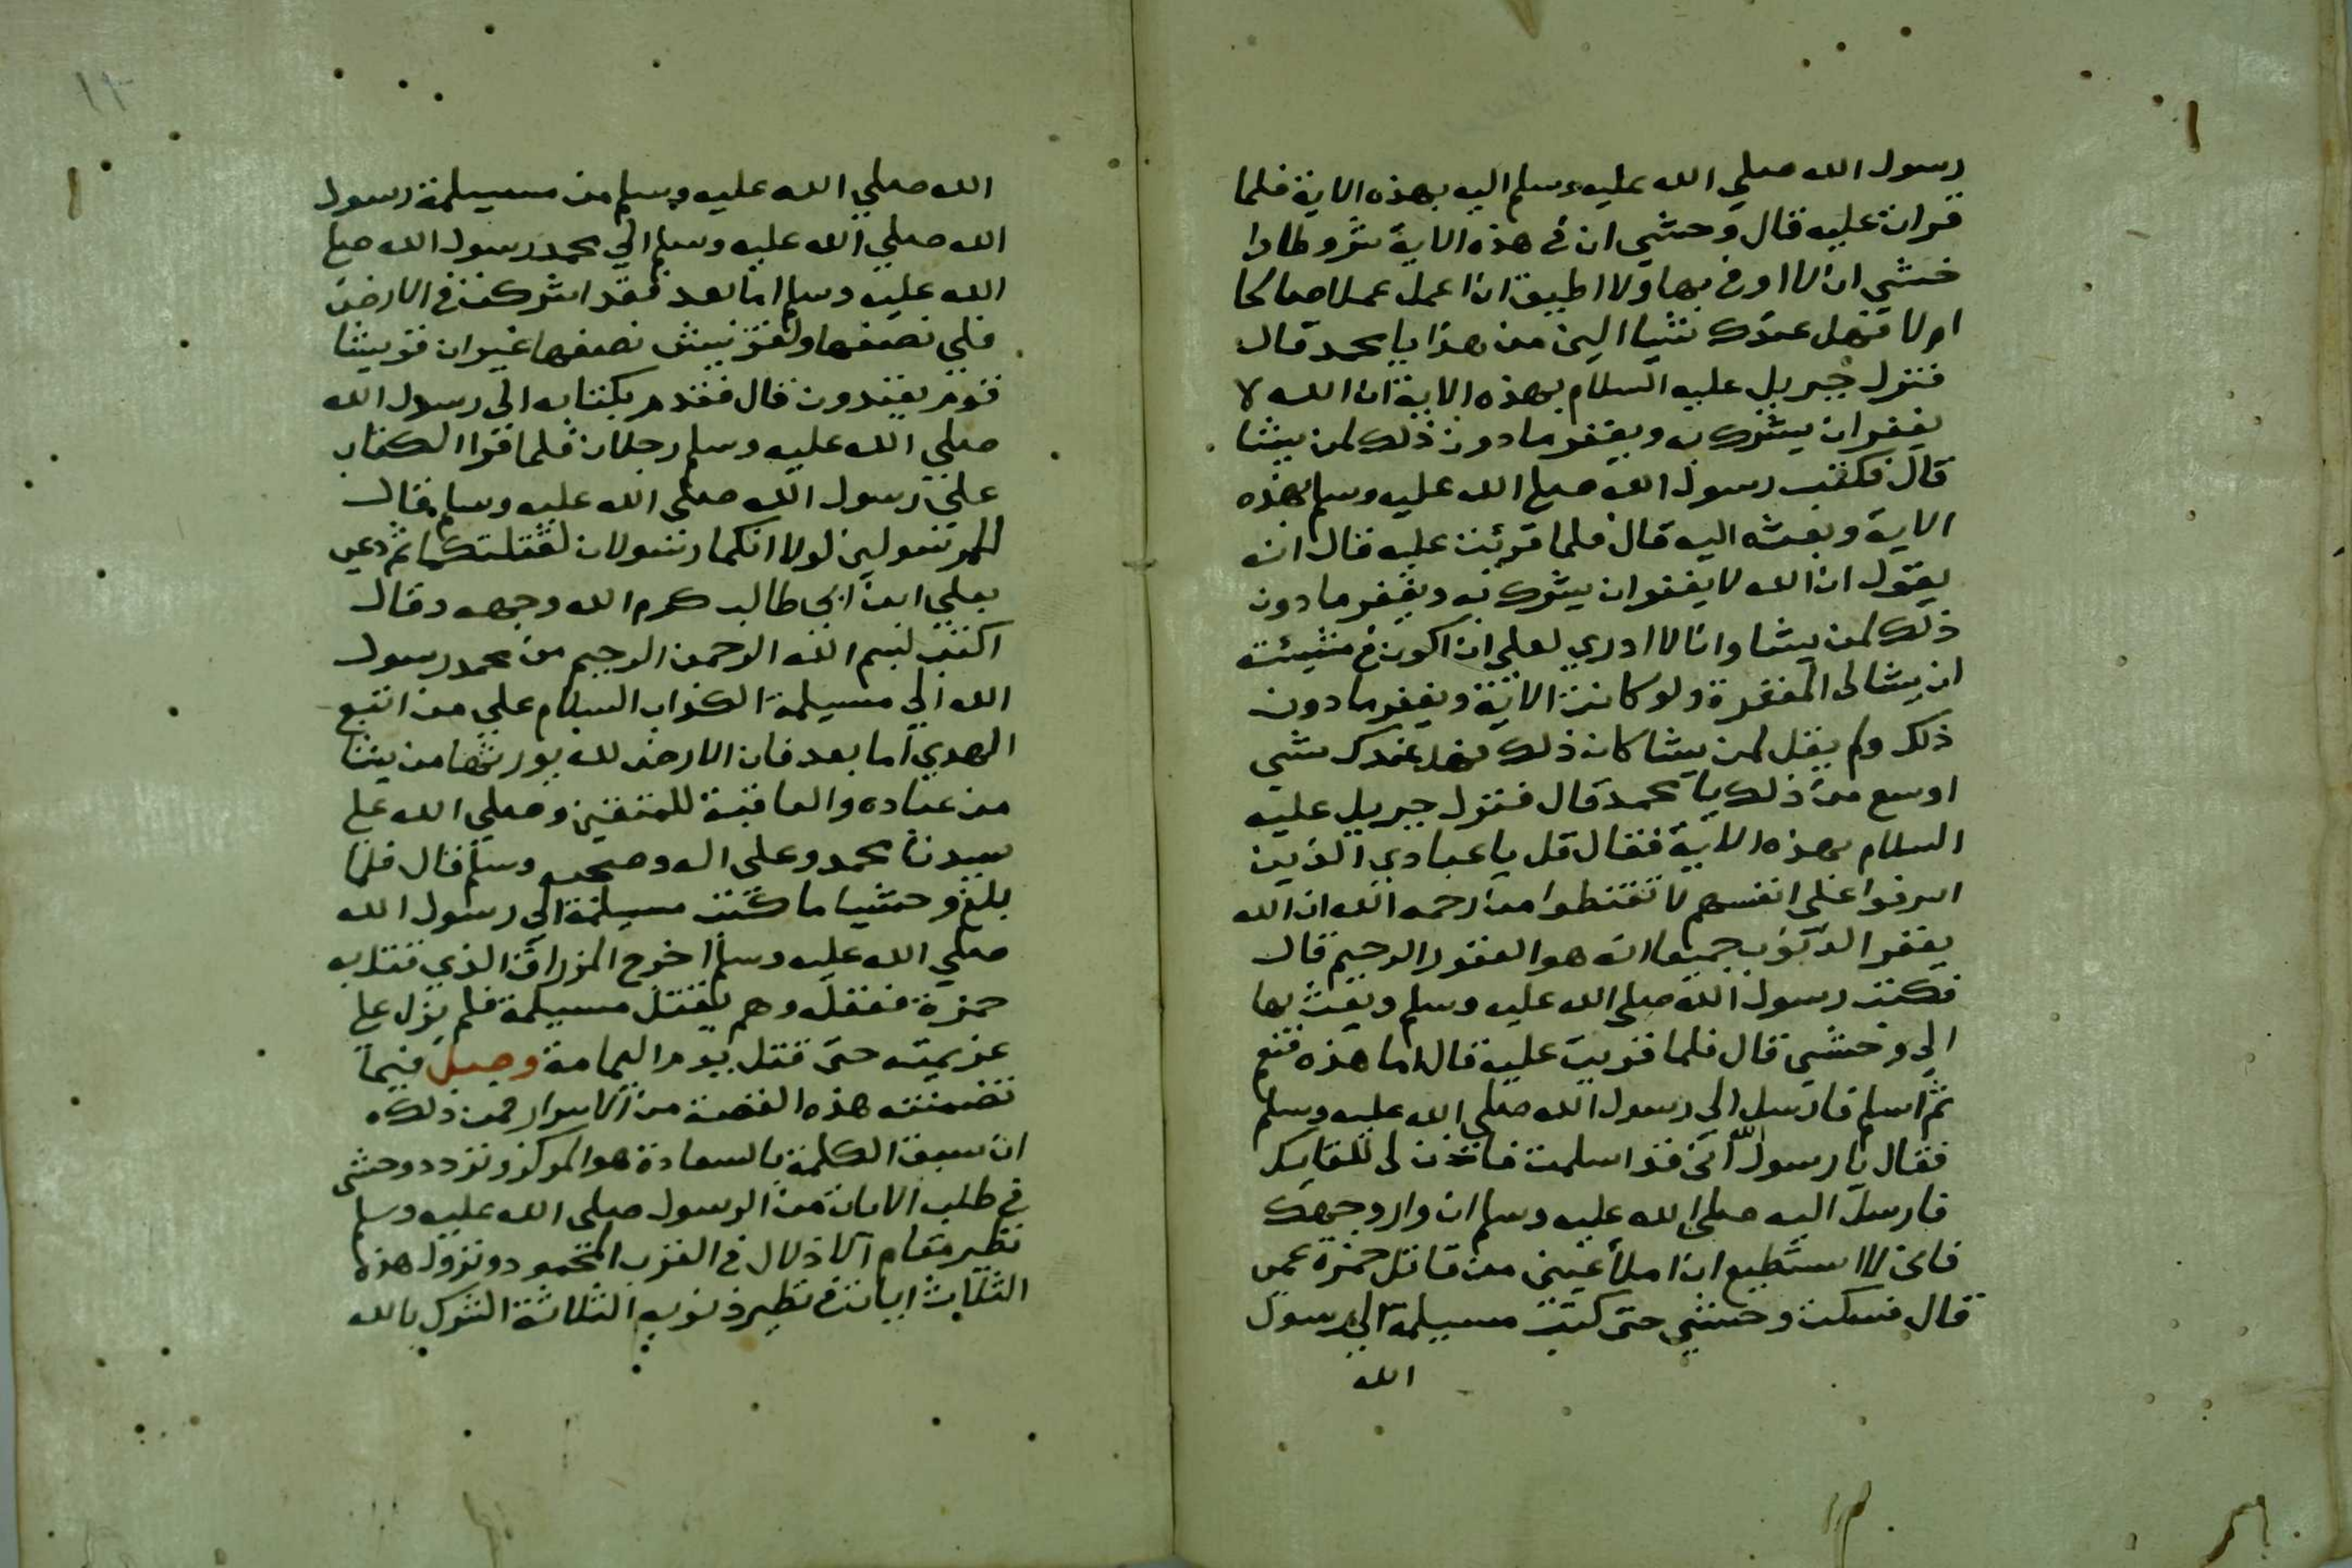 رسول الله صلي الله عليه وسلم اليه بهذه الاية فلما
قرات عليه قال وحشي ان في هذه الاية شروطا وا
خشي ان لا اوفي بها ولا اطيق ان اعمل عملا صالحا
ام لا فهل عندك شيا الين من هذا يا محمد قال
فنزل جبريل عليه السلام بهذه الاية ان الله لا
يغفر ان يشرك به ويغفر ما دون ذلك لمن يشا
قال فكتب رسول الله صلع الله عليه وسلم بهذه
الاية وبعث اليه قال فلما قرئت عليه قال انه
يقول ان الله لا يغفر ان يشرك به ويغفر ما دون
ذلك لمن يشا وانا لا ادري لعلي ان اكون في مشيئته
ان يشا لي المغفرة ولو كانت الاية ويغفر ما دون
ذلك ولم يقل لمن يشا كان ذلك فهل عندك شي
اوسع من ذلك يا محمد قال فنزل جبريل عليه
السلام بهذه الاية فقال قل يا عبادي الذين
اسرفوا على انفسهم لا تقنطوا من رحمة الله ان الله
يغفر الذنوب جميعا انه هو الغفور الرحيم قال
فكتب رسول الله صلى الله عليه وسلم وبعث بها
الي وحشي قال فلما قريت عليه قال اما هذه فنعم
ثم اسلم فارسل الي رسول الله صلي الله عليه وسلم
فقال يا رسول الله اني قد اسلمت فاذن لي للقايك
فارسل اليه صلي الله عليه وسلم ان وار وجهك
فاني لا استطيع ان املأ عيني من قاتل حمزة عمي
قال فسكت وحشي حتى كتب مسيلمة الي رسول
الله
١٣
الله صلي الله عليه وسلم من مسيلمة رسول
الله صلي الله عليه وسلم الي محمد رسول الله صلع
الله عليه وسلم اما بعد فقد اشركت في الارض
فلي نصفها ولقريش نصفها غير ان قريشا
قوم يعتدون قال فقدم بكتابه الي رسول الله
صلي الله عليه وسلم رجلان فلما قرا الكتاب
علي رسول الله صلي الله عليه وسلم قال
للمرسولين لولا انكما رسولان لقتلتكما ثم دعى
بعلي ابن ابي طالب كرم الله وجهه وقال
اكتب لبسم الله الرحمن الرحيم من محمد رسول
الله الي مسيلمة الكذاب السلام علي من اتبع
الهدي اما بعد فان الارض لله يورثها من يشا
من عباده والعاقبة للمتقين وصلي الله علع
سيدنا محمد وعلى اله وصحبه وسلم قال فلما
بلغ وحشيا ما كتب مسيلمة الي رسول الله
صلي الله عليه وسلم اخرج المزراق الذي قتل به
حمزة فصقله وهم بقتل مسيلمة فلم يزل علع
عزيمته حتى قتل يوم اليمامة وصل فيما
تضمنته هذه القصة من الاسرار فمن ذلك
ان سبق الكلمة بالسعادة هو المركز وتردد وحشى
في طلب الامان من الرسول صلى الله عليه وسلم
نظير مقام الاذلال في القرب المحمود ونزول هذه
الثلاث ايات في نظير ذنوبه الثلاثة الشرك بالله